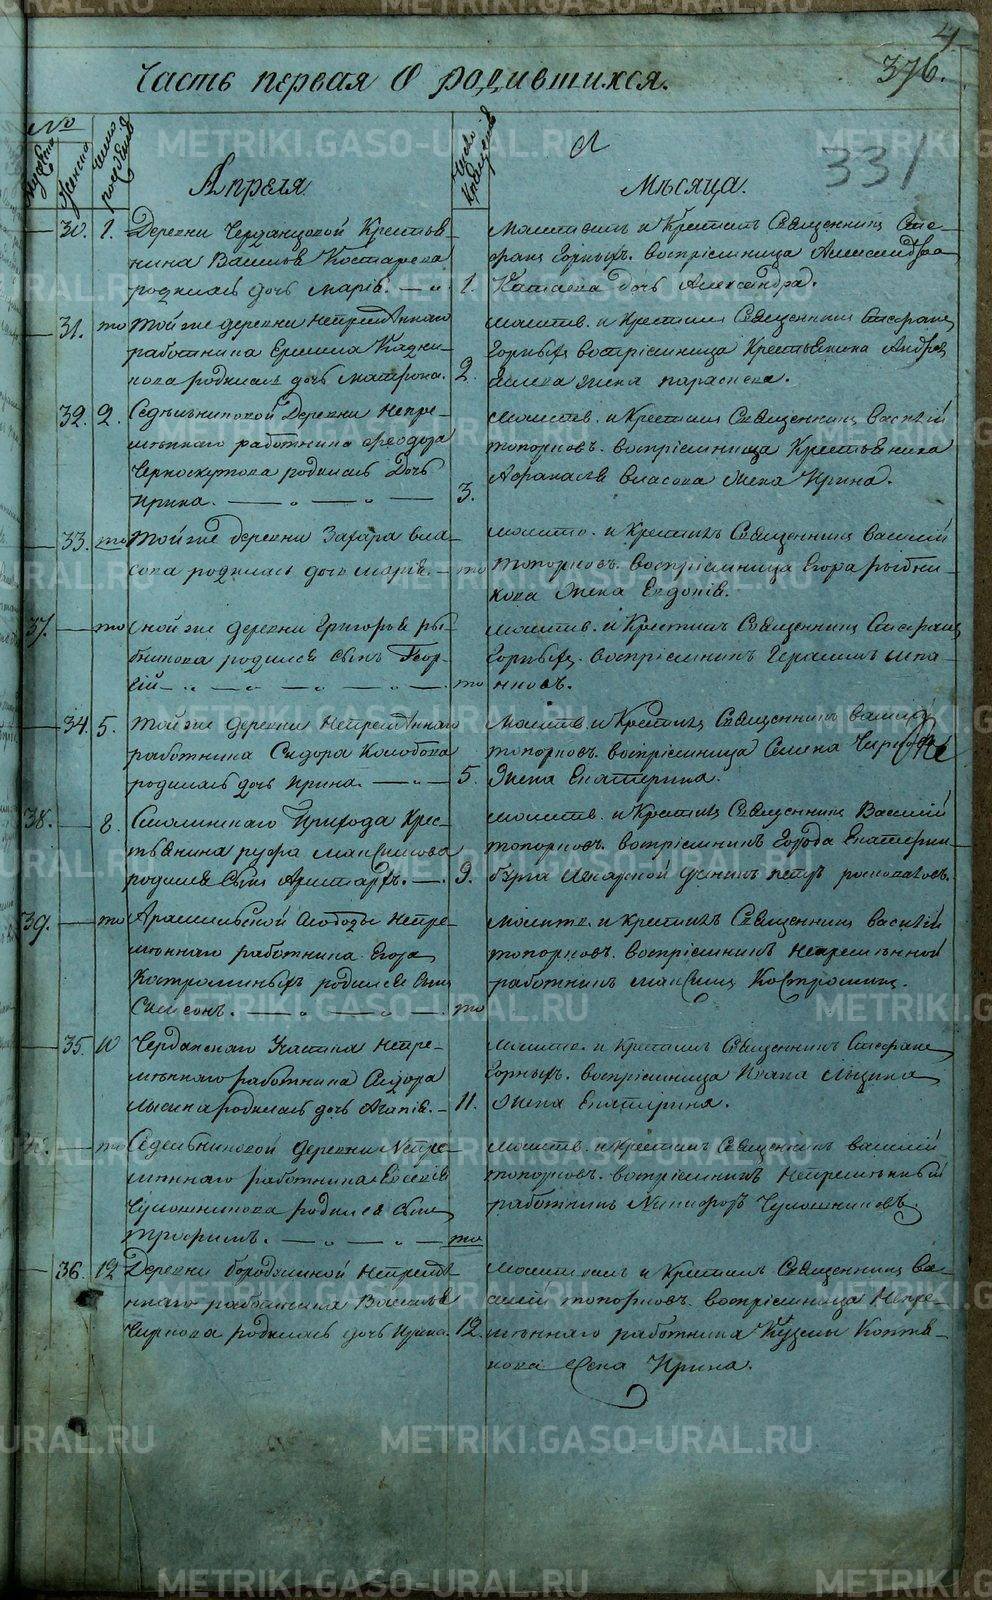 4.
376.
Часть первая О родившихся.
331
№
мужеска
женска
число рождения
Апреля
число крещения
Мѣсяца.
30. 1. Деревни Черданцовой Крестья-
нина Василья Костарева
родилась дочь Марія.
Молитвилъ и Крестилъ Священникъ Сте-
фанъ Горныхъ. воспріемница Александра
1. дочь Александра.
31. то Той же деревни Непремѣннаго
работника Ермила
родилась дочь Матрона.
молитв. и Крестилъ Священникъ Стефанъ
Горныхъ воспріемница Крестьянина Андрея
2. жена параскева.
32. 2. Седельниковой Деревни Непре-
мѣннаго работника Феодора
Черноскутова родилась Дочь
Ирина.
Молитв. и Крестилъ Священникъ Василій
топорковъ. воспріемница Крестьянина
Афанасья власова жена Ирина.
3.
33. то Той же деревни Захара вла-
сова родилась дочь Марія.
молитв. и Крестилъ Священникъ Василій
то топорковъ. воспріемница Егора рыбни-
кова жена Евдокія.
37. то Оной же деревни Григорья ры-
бникова родился Сынъ Геор-
гій
молитв. и Крестилъ Священникъ Стефанъ
Горныхъ. воспріемникъ Герасимъ
то
34. 5. Той же деревни Непремѣннаго
работника Сидора Колобова
родилась дочь Ирина.
Молитв. и Крестилъ Священникъ Василій
топорковъ. воспріемница Семена
5. жена Екатерина.
38. 8. Смолинскаго Прихода Крес-
тьянина руфа Максимова
родился Сынъ Аристархъ.
молитв. и Крестилъ Священникъ Василій
топорковъ. воспріемникъ Города Екатерин-
9. бурга петръ
39. то Арамильской Слободы Непре-
мѣннаго работника Егора
Костроминыхъ родился Сынъ
Симеонъ.
Молитв. и Крестилъ Священникъ Василій
топорковъ. воспріемникъ Непремѣнной
работникъ Максимъ Костроминъ.
то
35. 10 Черданскаго Непре-
мѣннаго работника Сидора
Лысина родилась дочь Агапія.
Молитв. и Крестилъ Священникъ Стефанъ
Горныхъ. воспріемница Ивана Лысина
11. жена Екатерина.
то Седельниковой деревни Непре-
мѣннаго работника
Чулошникова родился Сынъ
Трофимъ.
молитв. и Крестилъ Священникъ Василій
топорковъ. воспріемникъ Непремѣнный
работникъ Никифоръ Чулошниковъ.
то
36. 12 Деревни бородулиной Непремѣ-
ннаго работника Василья
Чиркова родилась дочь Ирина.
Молитвилъ и Крестилъ Священникъ Ва-
силій топорковъ. воспріемница Непре-
12. мѣннаго работника Кузмы Коптя-
кова жена Ирина.
METRIKI.GASO-URAL.RU